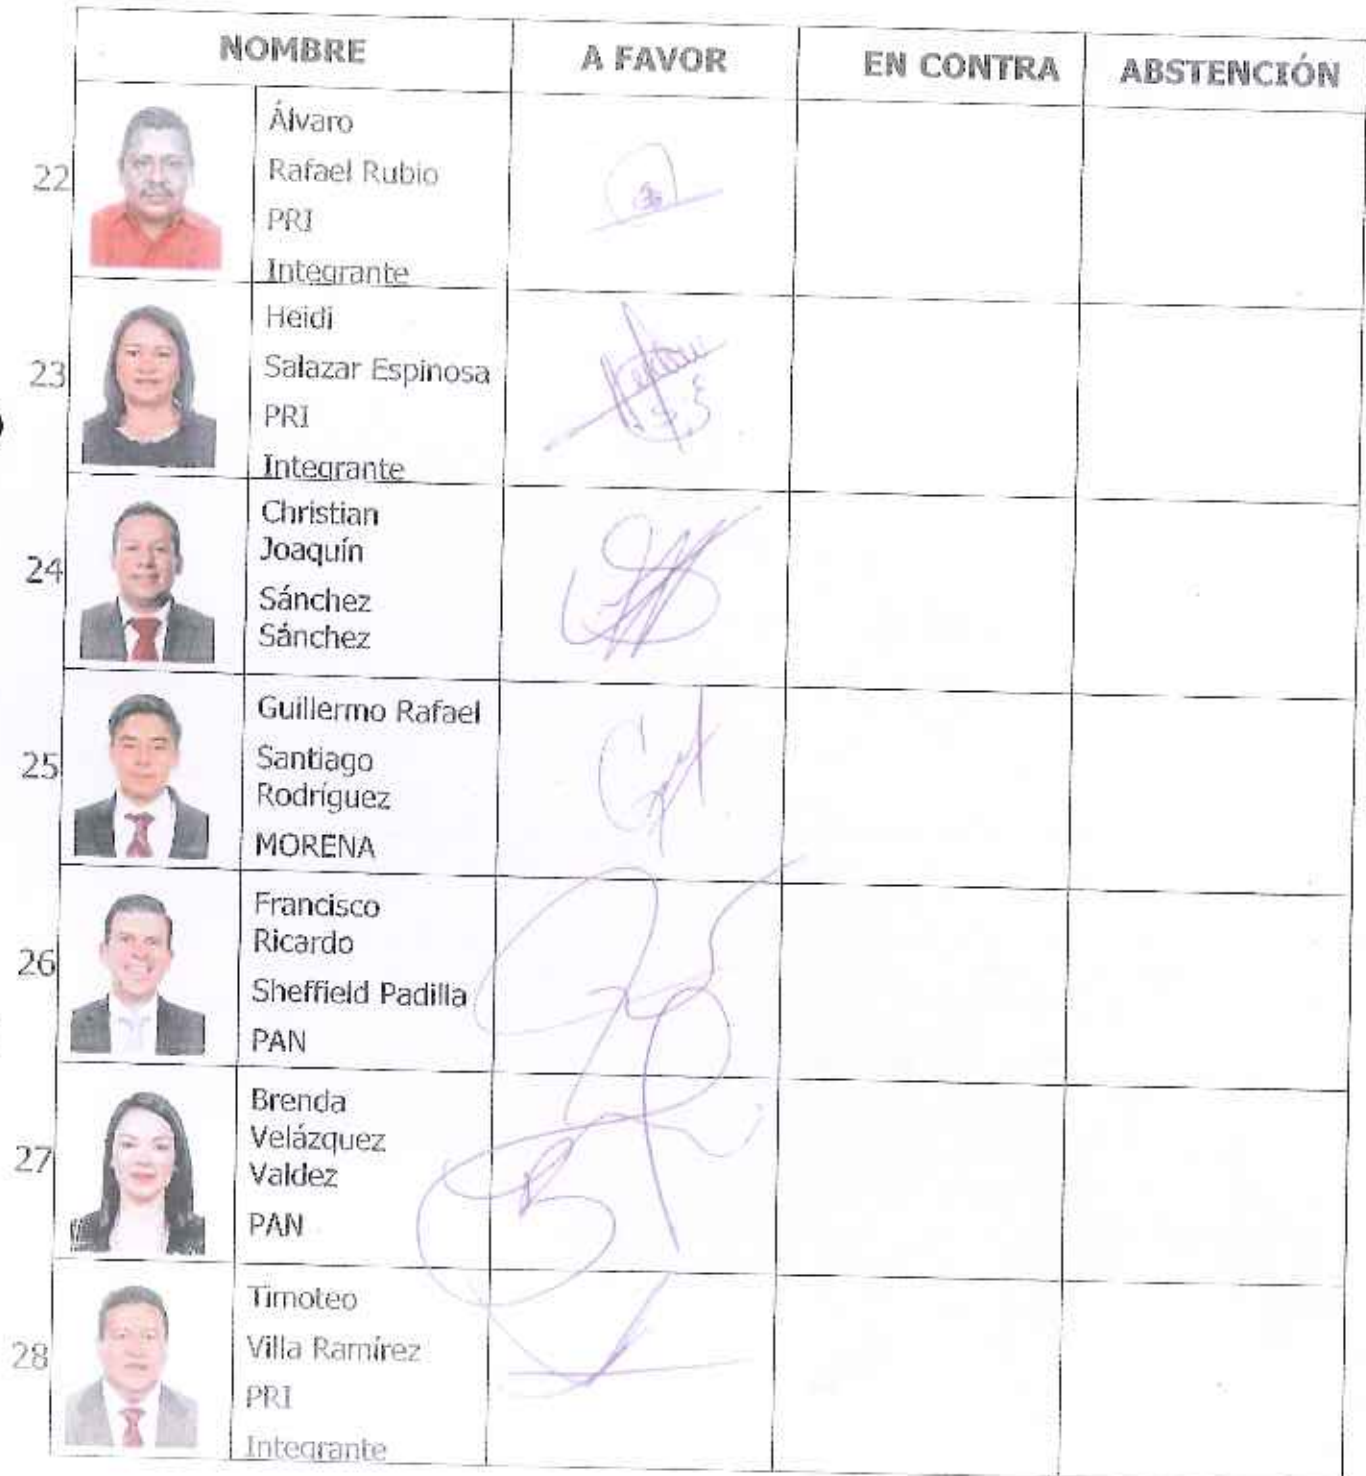 NOMBRE A FAVOR EN CONTRA ABSTENCIÓN
22
Álvaro
Rafael Rubio
PRI
Integrante
23
Heidi
Salazar Espinosa
PRI
Integrante
24
Christian
Joaquín
Sánchez
Sánchez
25
Guillermo Rafael
Santiago
Rodríguez
MORENA
26
Francisco
Ricardo
Sheffield Padilla
PAN
27
Brenda
Velázquez
Valdez
PAN
28
Timoteo
Villa Ramírez
PRI
Integrante